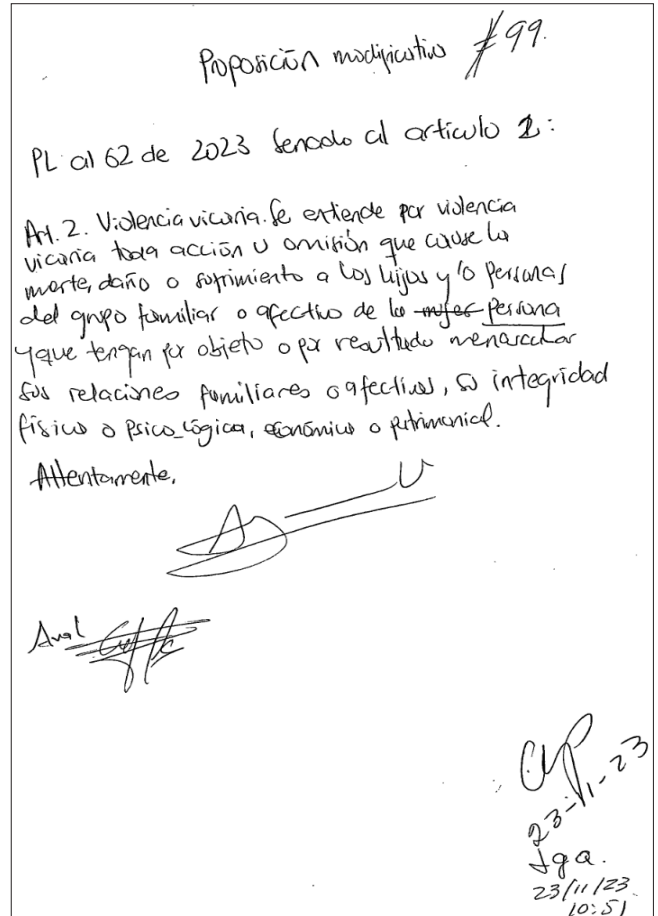 Proposición modificativa #99.
PL al 62 de 2023 Senado al articulo 2:
Art. 2. Violencia vicaria. Se entiende por violencia
vicaria toda acción u omisión que cause la
muerte, daño o sufrimiento a los hijos y/o personas
del grupo familiar o afectivo de la mujer persona
y que tengan por objeto o por resultado menoscabar
sus relaciones familiares o afectivas, su integridad
física o psicológica, económica o patrimonial.
Attentamente,
Aval
23-11-23
23/11/23
10:51